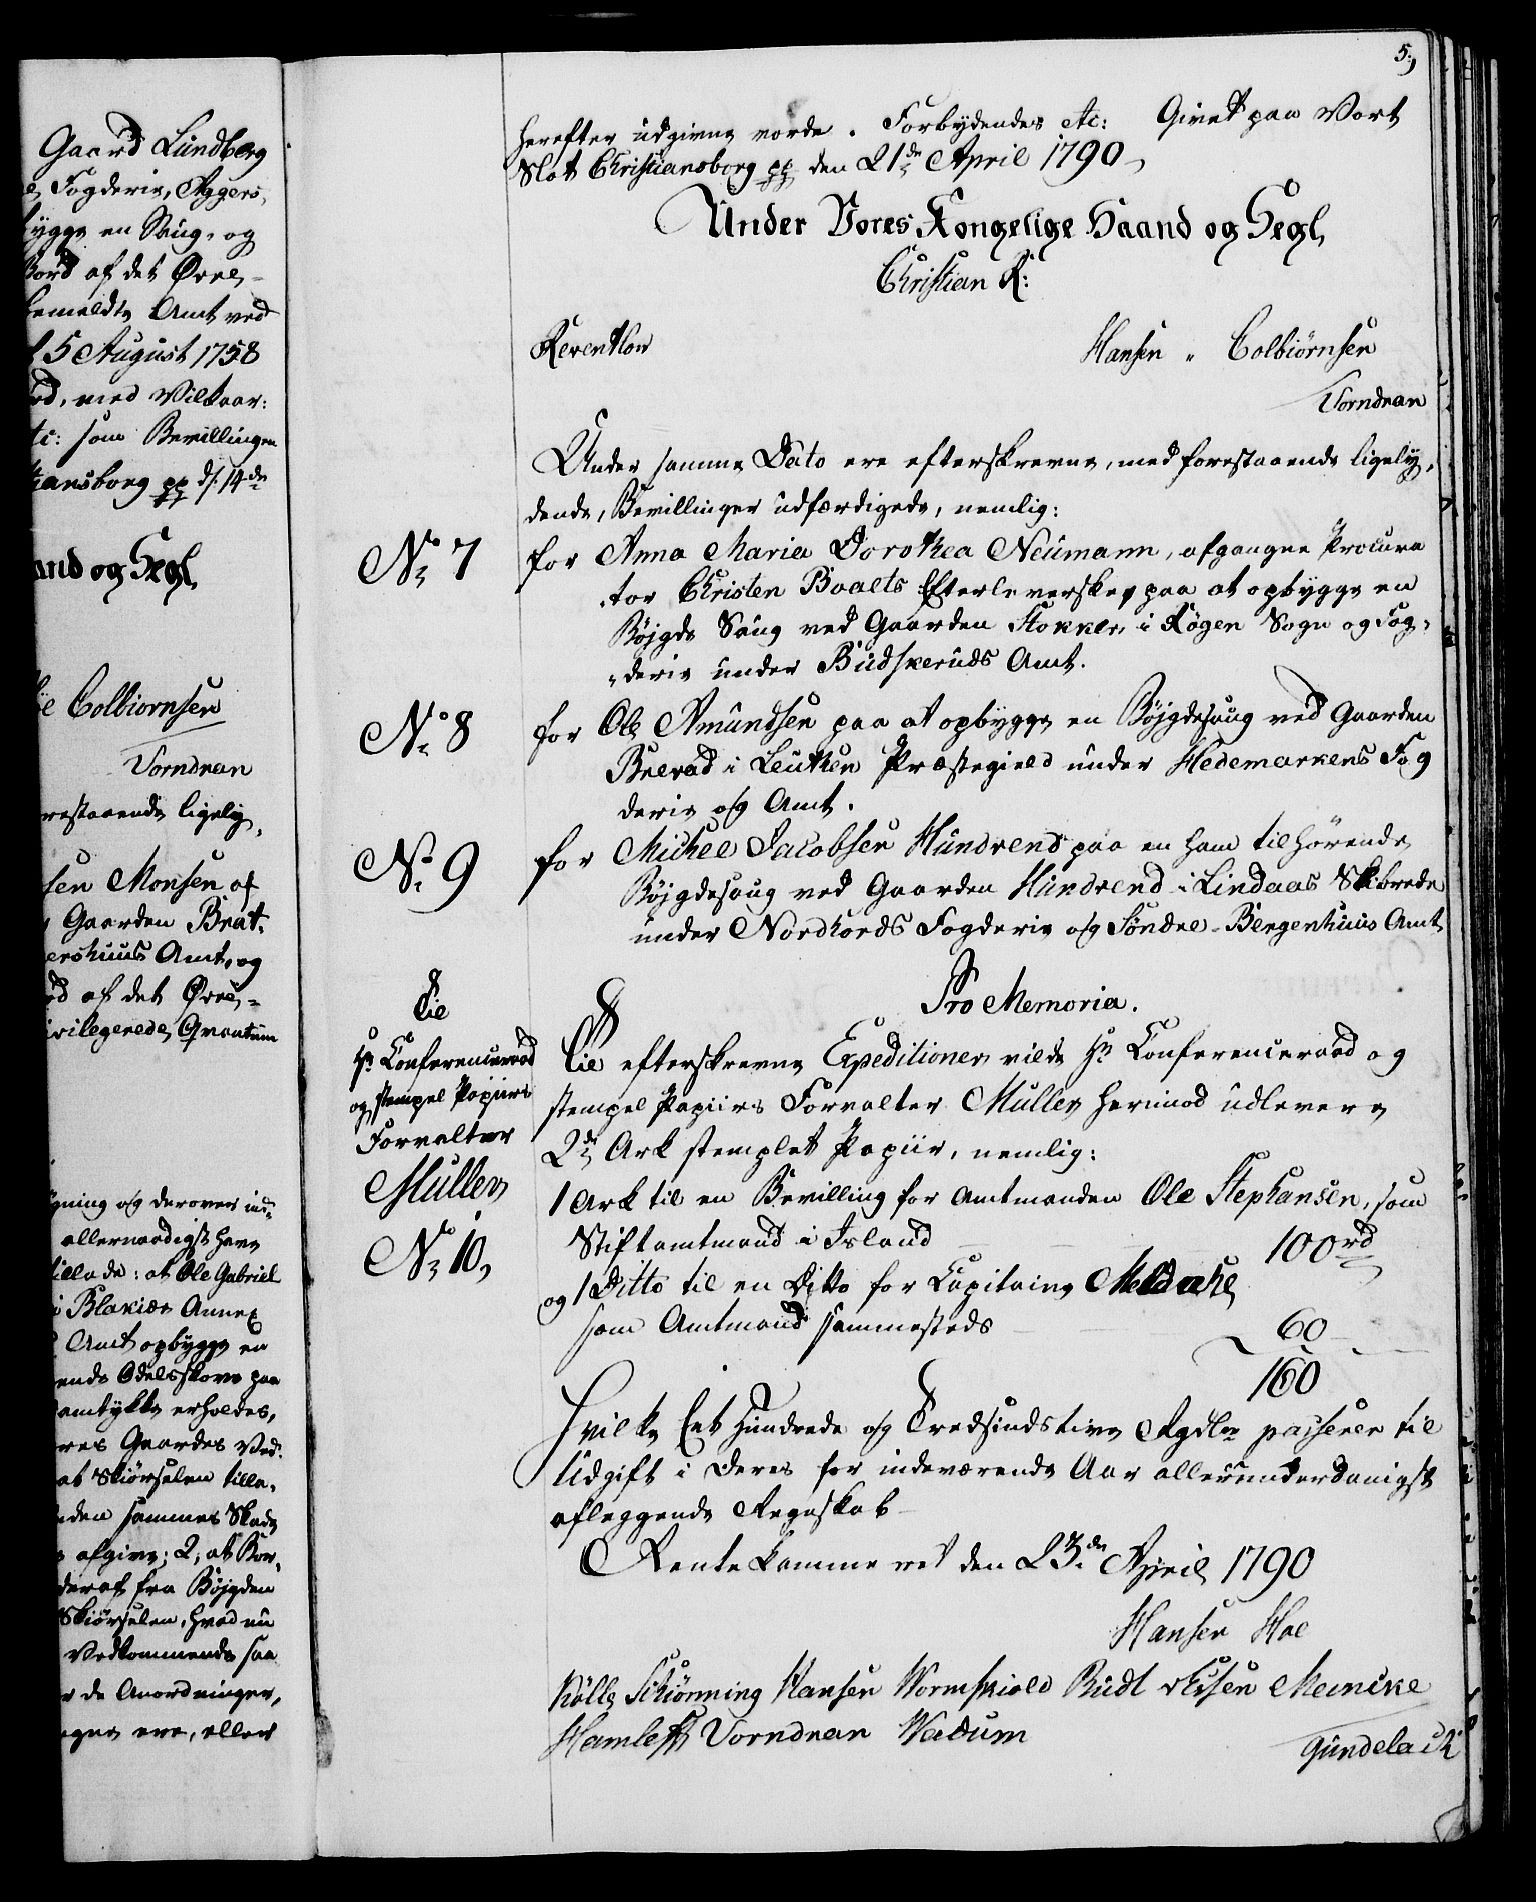 5,
Gaard Lundberg
Fogderie, Aggers,
bygge en Saug, og
Bord af det Øvre,
bemeldte Amt ved
5 August 1758
med Vilkaar:
etc: som Bevillingen
iansborg pp d. 14de
and og Segl,
Colbiornsen
Vorndran
restaaende ligely,
sen Monsen af
Gaarden Brat,
ershuus Amt, og
af det Øvre,
ivilegerede Qvantum
gning og derover ind,
allernaadigst have
tillade: at Ole Gabriel
i Blakiær Annex
Amt opbygge en
ende Odelsskove paa
samtykke erholdes,
res Gaardes Ved,
at Skiørselen tille,
den sammes Skade
afgive; 2, at Bor,
deraf fra Bøjgden
Skiørselen, hvad nu
Vedkommende saa
de Anordninger,
ere, eller
herefter udgivne vorde. Forbydendes etc: Givet paa Vort
Slot Christiansborg pp den 21de April 1790,
Under Vores Kongelige Haand og Segl,
Christian R:
Reventlow
Hansen „ Colbiørnsen
Vorndran
Under samme Dato ere efterskrevne, med forestaaende ligely,
dende, Bevillinger udfærdigede, nemlig:
No 7 for Anna Maria Dorothea Neumann, afgangne Procura
tor Christen Baalts Efterleverske, paa at opbygge en
Bøjgde Saug ved Gaarden Stokker, i Røgen Sogn og Fog,
„derie under Budskeruds Amt.
No 8 for Ole Amundsen paa at opbygge en Bøjgdesaug ved Gaarden
Brevad i Leuthen Præstegield under Hedemarkens Fog
derie og Amt.
No 9 for Michel Jacobsen Hundvend paa en ham tilhørende
Bøjgdesaug ved Gaarden Hundvend i Lindaas Skibrede
under Nordhords Fogderie og Søndre-Bergenhuus Amt
Pro Memoria.
Til
Hr Conferenceraad
og stempel Papiirs
Forvalter
Muller
No 10,
Til efterskrevne Expeditioner vilde Hr Conferenceraad og
stempel Papiirs Forvalter Muller herimod udlevere
2de Ark stemplet Papiir, nemlig:
1 Ark til en Bevilling for Amtmanden Ole Stephansen, som
Stiftamtmand i Island 100rd
og 1 Ditto til en Ditto for Capitaine Meldahl
som Amtmand sammesteds 60
160
Hvilke Eet Hundrede og Tredsindstive Rgdlr passerer til
Udgift i Deres for indeværende Aar allerunderdanigst
aflæggende Regnskab
Rentekammeret den 23de April 1790
Hansen Hoe
Kølle Schiønning Hansen Wormskiold Rudl Essen Meincke
Hamleff Vorndran Wadum
Gundelach